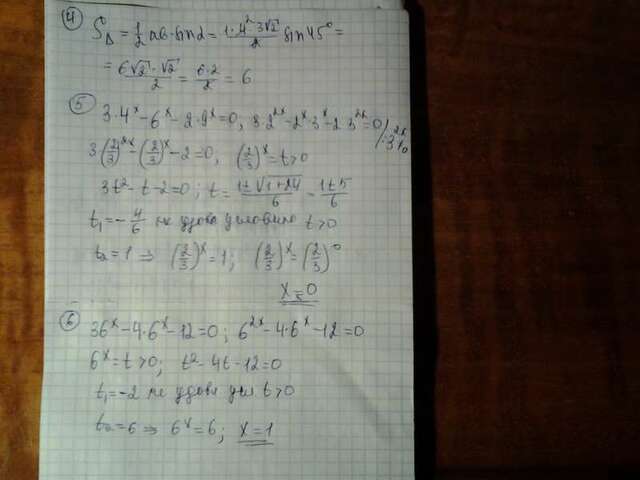 4 S△ = 1/2 ab·sin α = (1·4²·3√2)/2 sin 45° =
= (6√2·√2)/2 = (6·2)/2 = 6
5 3·4ˣ - 6ˣ - 2·9ˣ = 0; 3·2²ˣ - 2ˣ·3ˣ - 2·3²ˣ = 0 /:3²ˣ≠0
3·(2/3)²ˣ - (2/3)ˣ - 2 = 0, (2/3)ˣ = t > 0
3t² - t - 2 = 0; t = (1±√(1+24))/6 = (1±5)/6
t₁ = -4/6 не удовл условию t > 0
t₂ = 1 ⇒ (2/3)ˣ = 1; (2/3)ˣ = (2/3)⁰
x = 0
6 36ˣ - 4·6ˣ - 12 = 0; 6²ˣ - 4·6ˣ - 12 = 0
6ˣ = t > 0; t² - 4t - 12 = 0
t₁ = -2 не удовл усл t > 0
t₂ = 6 ⇒ 6ˣ = 6; x = 1